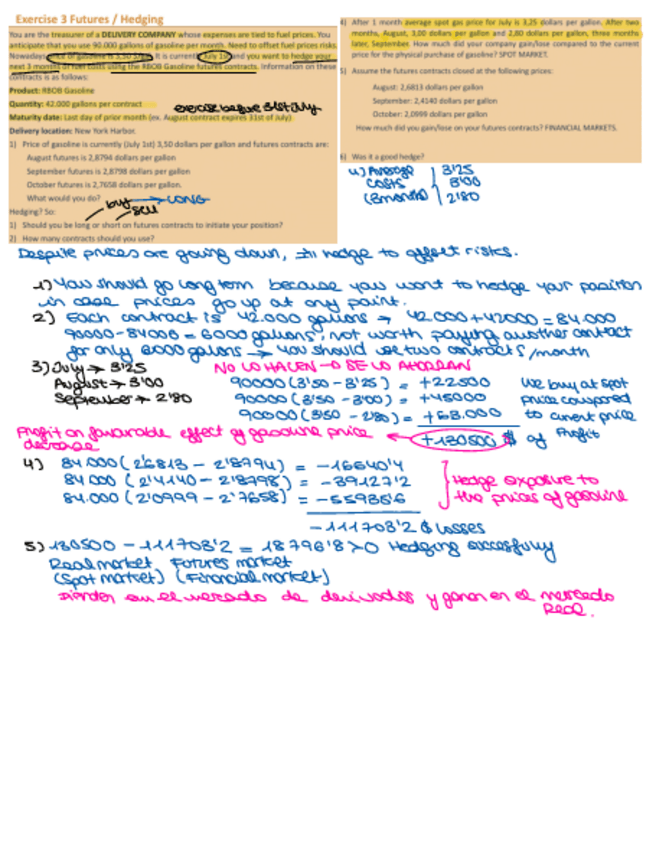 Exercise 3 Futures / Hedging
You are the treasurer of a DELIVERY COMPANY whose expenses are tied to fuel prices. You
anticipate that you use 90.000 gallons of gasoline per month. Need to offset fuel prices risks.
Nowadays price of gasoline is 3,50 $/gal. It is currently July 1st and you want to hedge your
next 3 months of fuel costs using the RBOB Gasoline futures contracts. Information on these
contracts is as follows:
Product: RBOB Gasoline
Quantity: 42.000 gallons per contract
exercise before 31st July
Maturity date: Last day of prior month (ex. August contract expires 31st of July)
Delivery location: New York Harbor.
1) Price of gasoline is currently (July 1st) 3,50 dollars per gallon and futures contracts are:
August futures is 2,8794 dollars per gallon
September futures is 2,8798 dollars per gallon
October futures is 2,7658 dollars per gallon.
What would you do? buy → LONG
sell
Hedging? So:
1) Should you be long or short on futures contracts to initiate your position?
2) How many contracts should you use?
4) After 1 month average spot gas price for July is 3,25 dollars per gallon. After two
months, August, 3,00 dollars per gallon and 2,80 dollars per gallon, three months
later, September. How much did your company gain/lose compared to the current
price for the physical purchase of gasoline? SPOT MARKET.
5) Assume the futures contracts closed at the following prices:
August: 2,6813 dollars per gallon
September: 2,4140 dollars per gallon
October: 2,0999 dollars per gallon
How much did you gain/loss on your futures contracts? FINANCIAL MARKETS.
6) Was it a good hedge?
4) Average 3'25
costs 3'00
(3 months) 2'80
Despite prices are going down, hedge to offset risks.
1) You should go long term because you want to hedge your position
in case prices go up at any point.
2) Each contract is 42.000 gallons → 42.000 + 42000 = 84.000
90000 - 84000 = 6000 gallons, not worth paying another contract
for only 6000 gallons → you should use two contracts/month
3) July → 3'25 NO LO HACEN → SE LO AHORRAN
August → 3'00 90000 (3'50 - 3'25) = +22500 We buy at spot
September → 2'80 90000 (3'50 - 3'00) = +45000 price compared
90000 (3'50 - 2'80) = +63.000 to current price
Profit on favorable effect of gasoline price ← +130500 $ of Profit
decrease
4) 84.000 (2'6813 - 2'8794) = -16640'4
84 000 (2'4140 - 2'8798) = -39127'2 Hedge exposure to
84.000 (2'0999 - 2'7658) = -55935'6 the prices of gasoline
-111703'2 $ losses
5) 130500 - 111703'2 = 18796'8 > 0 Hedging succesfully
Real market Futures market
(Spot market) (Financial market)
Pierden en el mercado de derivados y ganan en el mercado
Real.